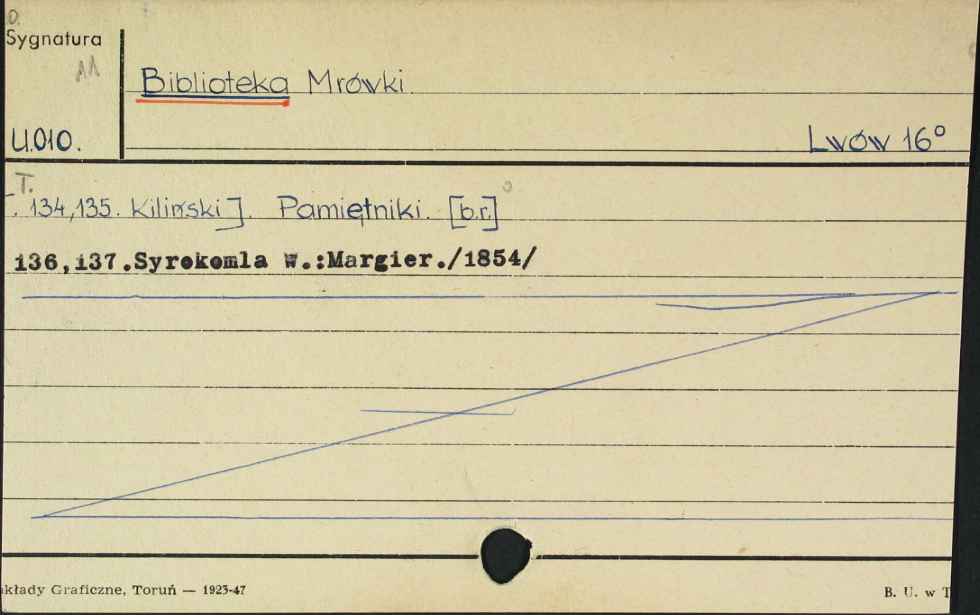 Sygnatura
11
Biblioteka Mrówki
U.010.
Lwów 16°
T.
134,135. Kiliński]. Pamiętniki. [b.r.]
136,137.Syrokomla W.:Margier./1854/
kłady Graficzne, Toruń — 1923-47
B. U. w T